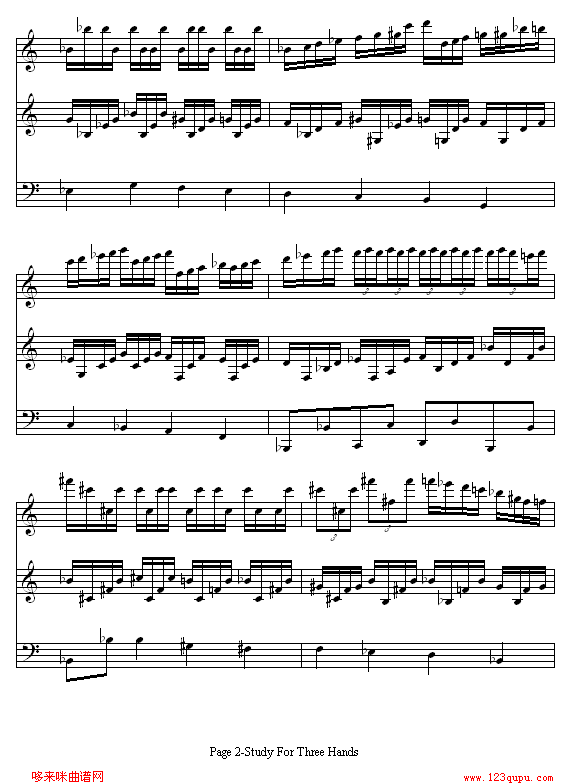 Page 2-Study For Three Hands
哆来咪曲谱网
www.123qupu.com